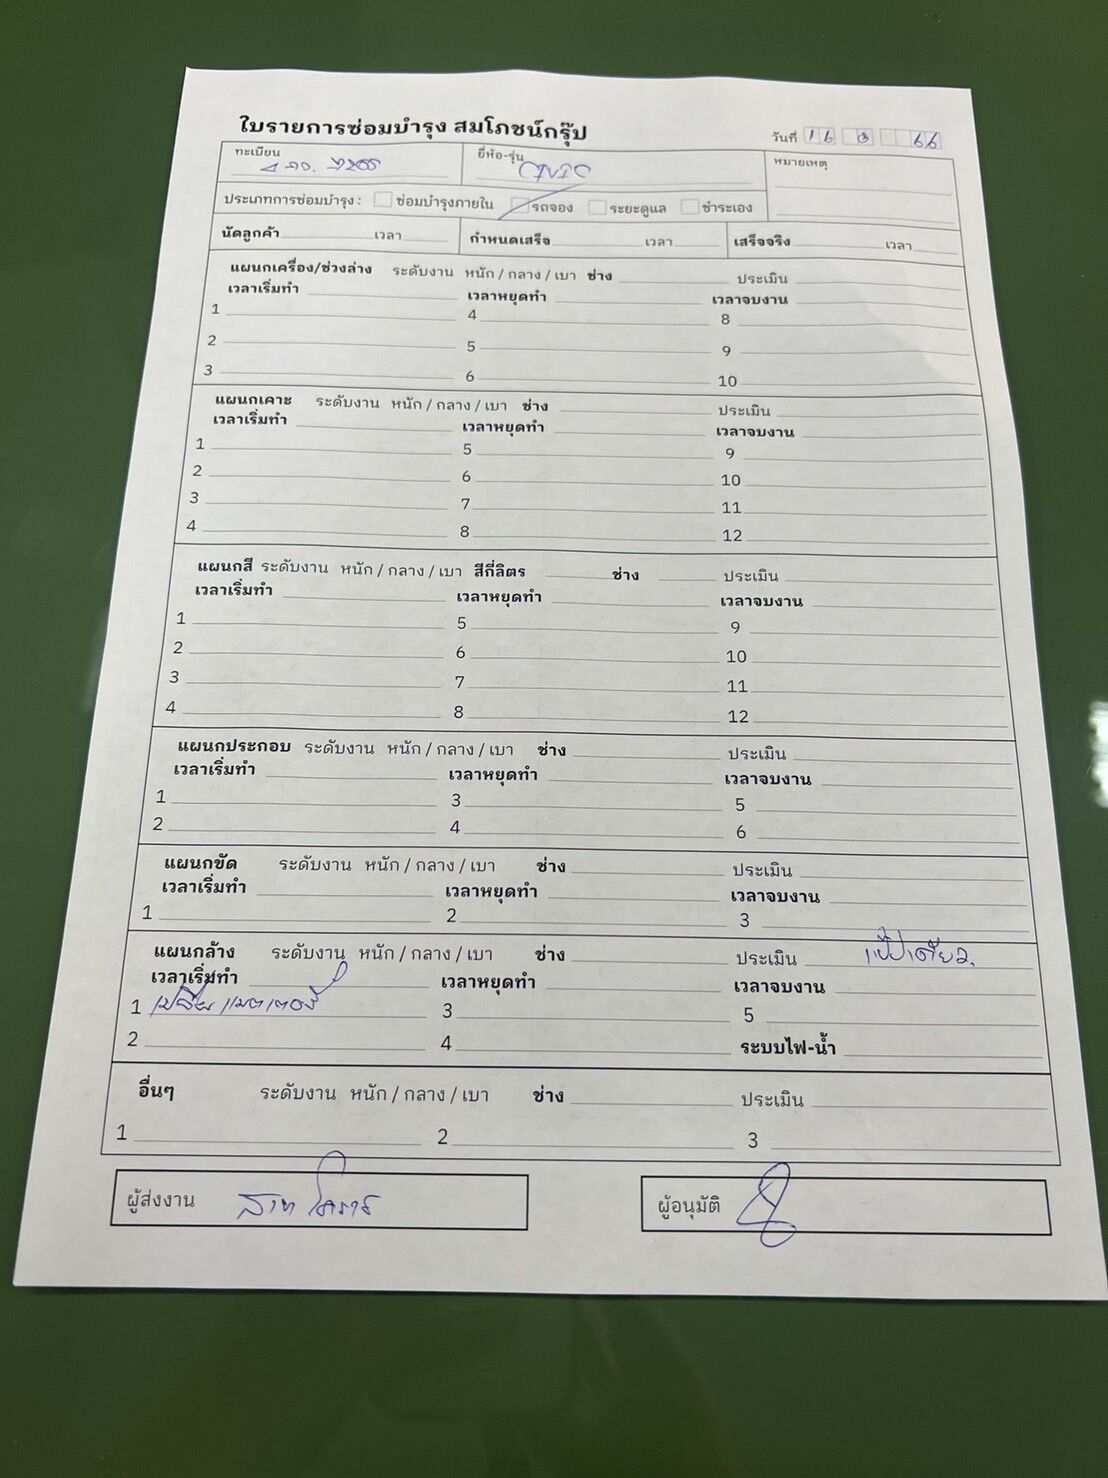 ใบรายการซ่อมบำรุง สมโภชน์กรุ๊ป
วันที่ 16 3 66
ทะเบียน ยี่ห้อ-รุ่น CIVIC หมายเหตุ
ประเภทการซ่อมบำรุง : ซ่อมบำรุงภายใน รถจอง ระยะดูแล ชำระเอง
นัดลูกค้า เวลา กำหนดเสร็จ เวลา เสร็จจริง เวลา
แผนกเครื่อง/ช่วงล่าง ระดับงาน หนัก / กลาง / เบา ช่าง ประเมิน
เวลาเริ่มทำ เวลาหยุดทำ เวลาจบงาน
1 4 8
2 5 9
3 6 10
แผนกเคาะ ระดับงาน หนัก / กลาง / เบา ช่าง ประเมิน
เวลาเริ่มทำ เวลาหยุดทำ เวลาจบงาน
1 5 9
2 6 10
3 7 11
4 8 12
แผนกสี ระดับงาน หนัก / กลาง / เบา สีกี่ลิตร ช่าง ประเมิน
เวลาเริ่มทำ เวลาหยุดทำ เวลาจบงาน
1 5 9
2 6 10
3 7 11
4 8 12
แผนกประกอบ ระดับงาน หนัก / กลาง / เบา ช่าง ประเมิน
เวลาเริ่มทำ เวลาหยุดทำ เวลาจบงาน
1 3 5
2 4 6
แผนกขัด ระดับงาน หนัก / กลาง / เบา ช่าง ประเมิน
เวลาเริ่มทำ เวลาหยุดทำ เวลาจบงาน
1 2 3
แผนกล้าง ระดับงาน หนัก / กลาง / เบา ช่าง ประเมิน
เวลาเริ่มทำ เวลาหยุดทำ เวลาจบงาน
1 3 5
2 4 ระบบไฟ-น้ำ
อื่นๆ ระดับงาน หนัก / กลาง / เบา ช่าง ประเมิน
1 2 3
ผู้ส่งงาน สาขา โคราช ผู้อนุมัติ